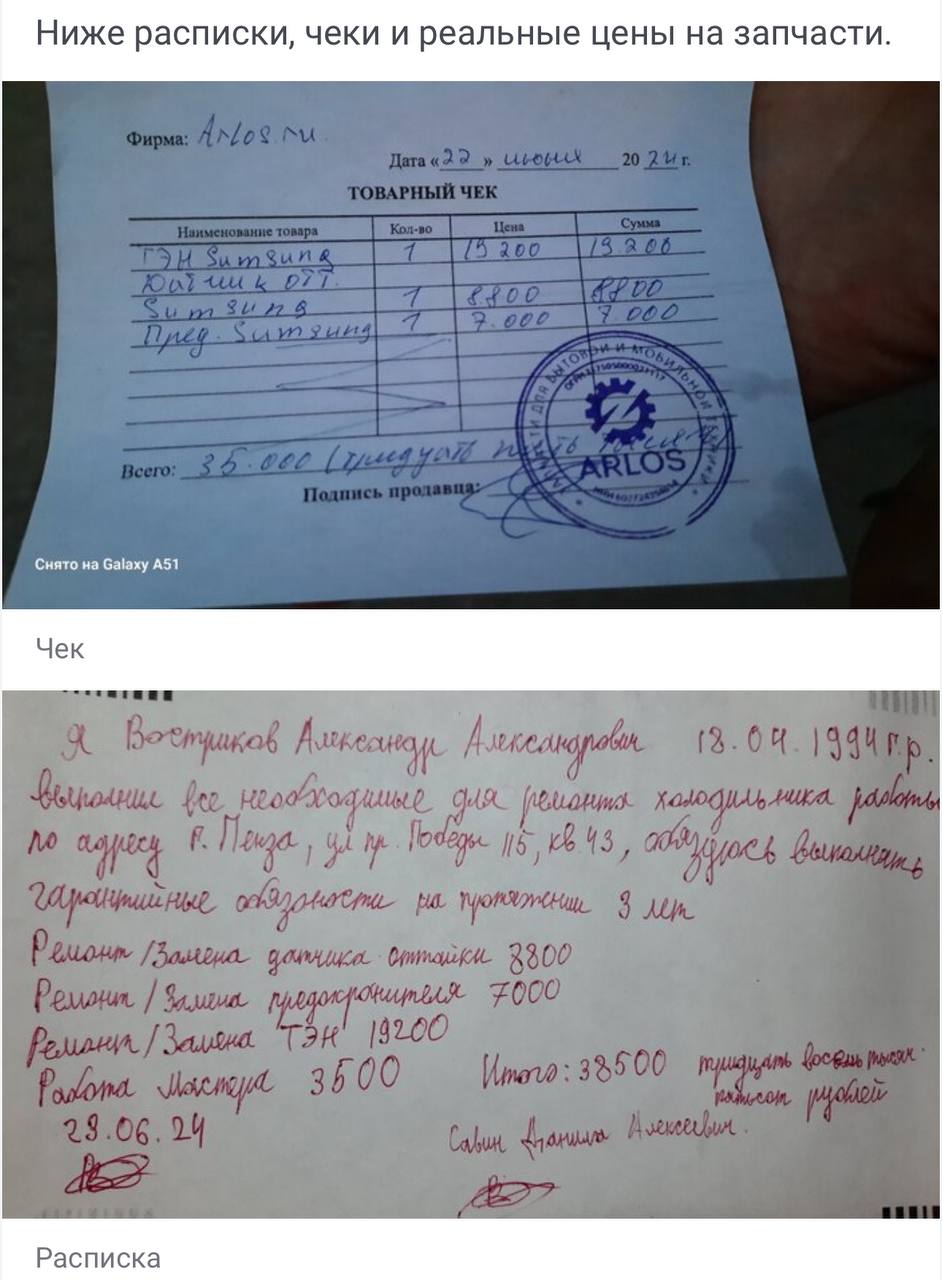 Ниже расписки, чеки и реальные цены на запчасти.
Фирма: Arlos.ru
Дата «22» июня 2024 г.
ТОВАРНЫЙ ЧЕК
Наименование товара Кол-во Цена Сумма
ТЭН Sumsung 1 19 200 19.200
Датчик отт.
Sumsung 1 8.800 8800
Пред. Sumsung 1 7.000 7.000
Всего: 35.000 (тридцать пять
ARLOS
Подпись продавца:
Снято на Galaxy A51
Чек
Я Востриков Александр Александрович 18.04.1994 г.р.
выполнил все необходимые для ремонта холодильника работы
по адресу г. Пенза, ул пр. Победы 115, кв 43, обязуюсь выполнять
гарантийные обязаности на протяжении 3 лет
Ремонт/Замена датчика оттайки 8800
Ремонт/Замена предохронителя 7000
Ремонт/Замена ТЭН 19200
Работа Мастера 3500 Итого: 38500 тридцать восемь тысяч
пятьсот рублей
23.06.24 Савин Данила Алексеевич.
Расписка